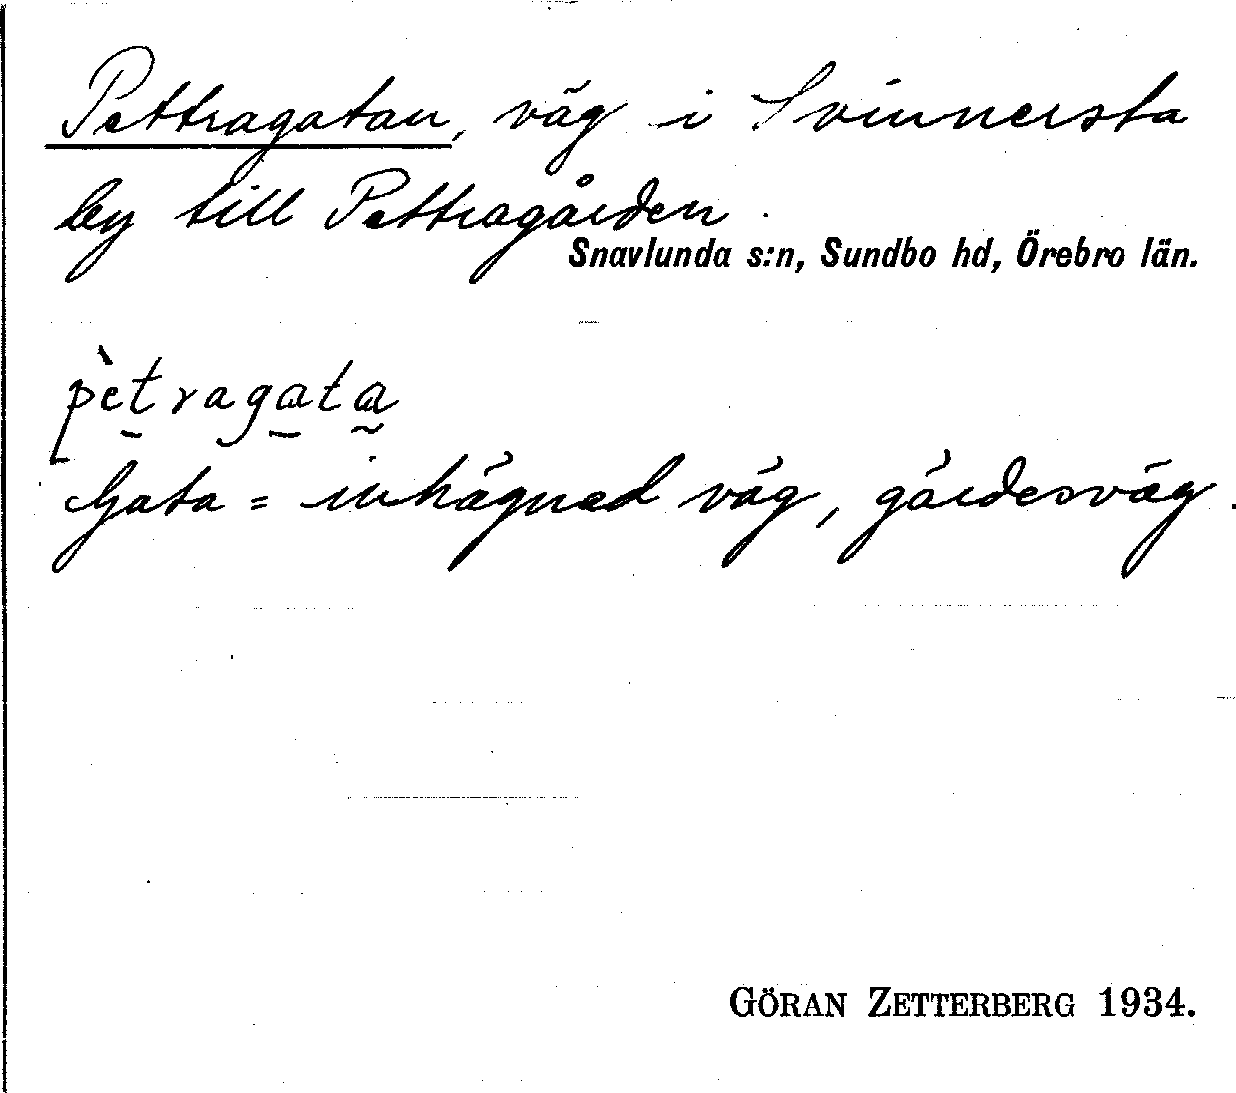 Pettragatan, väg i Svinnersta
by till Pettragården.
Snavlunda s:n, Sundbo hd, Örebro län.
pètragata
Gata = inhägnad väg, gärdesväg.
GÖRAN ZETTERBERG 1934.